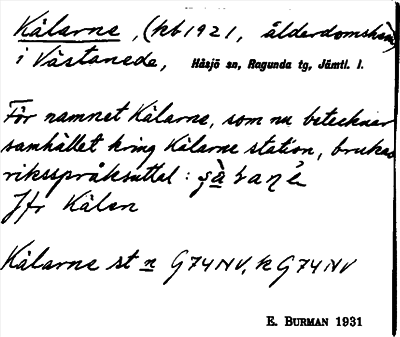 Kälarne, (kb 1921, ålderdomshem)
i Västanede, Håsjö sn, Ragunda tg, Jämtl. l.
För namnet Kälarne, som nu betecknar
samhället kring Kälarne station, brukas
riksspråksuttal:
Jfr Kälen
Kälarne st n G74NV, k G74NV
E. BURMAN 1931